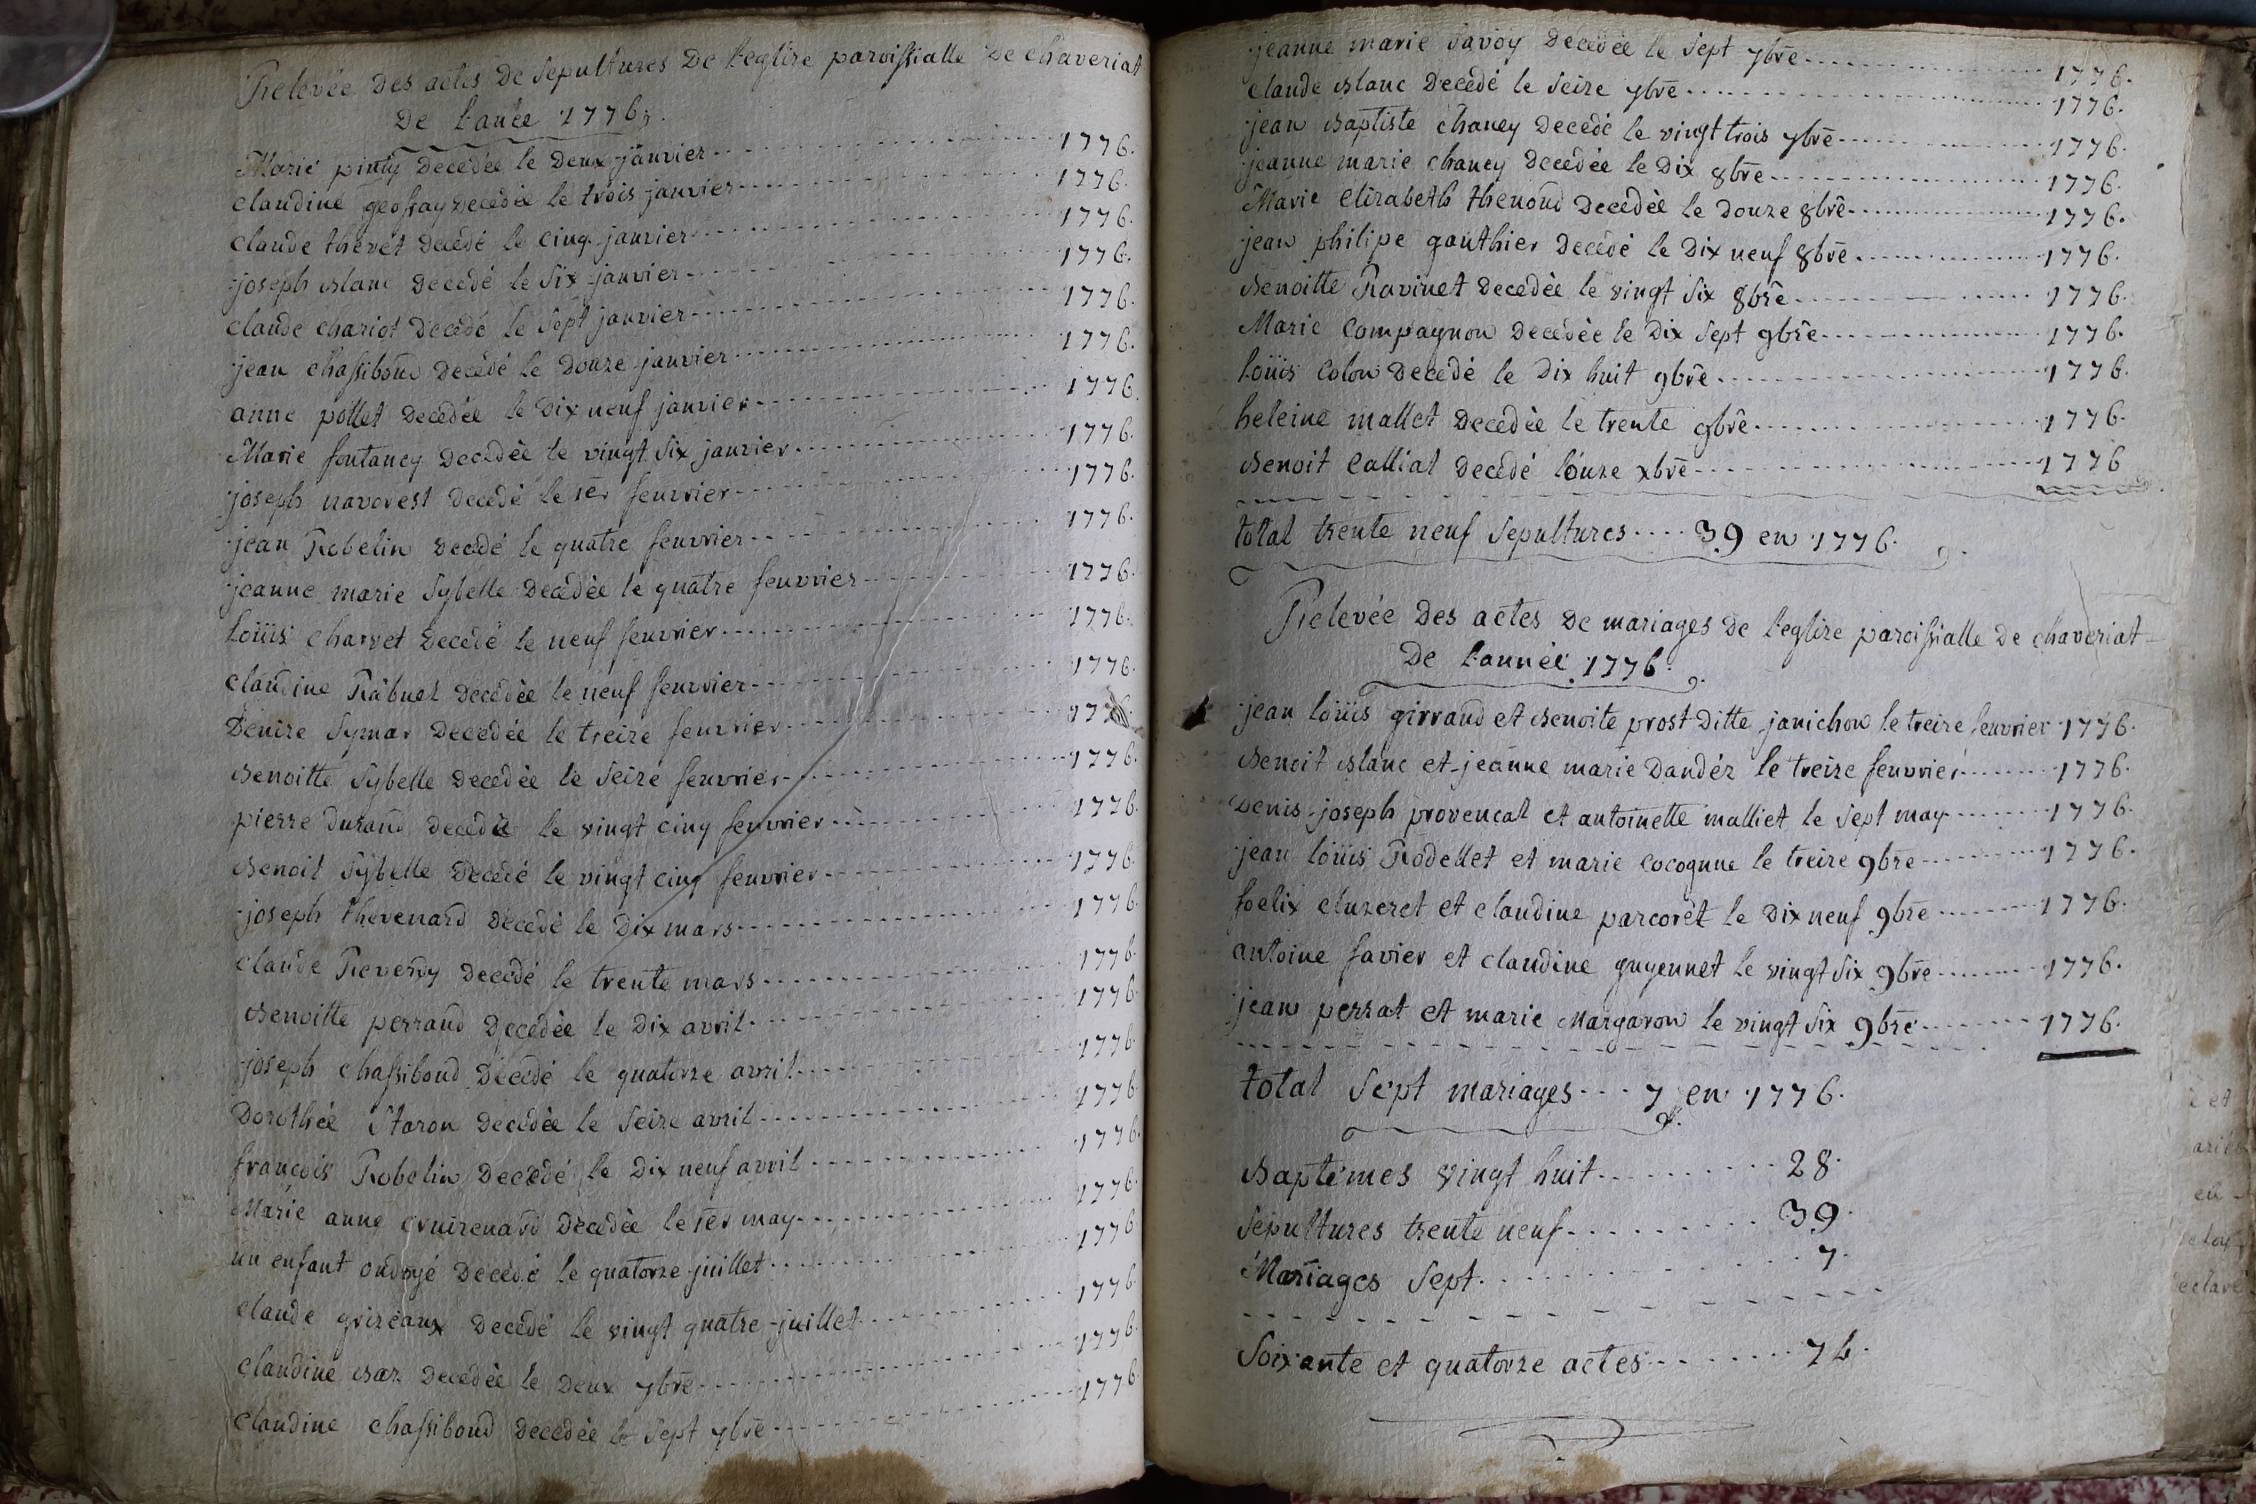 Relevée des actes de sepultures de l'eglize paroissialle de chaveriat
de l'année 1776.
Marie decédée le deux janvier 1776.
claudine geoffray decédée le trois janvier 1776.
claude thevet decédé le cinq janvier 1776.
joseph blanc decédé le six janvier 1776.
claude chariot decédé le sept janvier 1776.
jean chassiboud decédé le douze janvier 1776.
anne pottet decédée le dix neuf janvier 1776.
Marie fontaney decédée le vingt six janvier 1776.
joseph navorest decédé le 1er feuvrier 1776.
jean Robelin decédé le quatre feuvrier 1776.
jeanne marie Sybelle decédée le quatre feuvrier 1776.
loüis charvet decedé le neuf feuvrier 1776.
claudine Rabuel decédée le neuf feuvrier 1776.
Denize Symar decedée le treize feuvrier 1776.
Benoitte Sybelle decédée le seize feuvrier 1776.
pierre durand decédé le vingt cinq feuvrier 1776.
Benoit Sybelle decédé le vingt cinq feuvrier 1776.
joseph thevenard decedé le dix mars 1776.
claude Reverdy decédé le trente mars 1776.
Benoitte perraud decédée le dix avril 1776.
joseph chassiboud decédé le quatorze avril 1776.
Dorothée Staron decédée le seize avril 1776.
françois Robelin decédé le dix neuf avril 1776.
Marie anne cruizenard decédée le 1er may 1776.
un enfant ondoyé decédé le quatorze juillet 1776.
claude grizeaux decédé le vingt quatre juillet 1776.
claudine decédée le deux 7bre 1776.
claudine chassiboud decedée le sept 7bre 1776.
jeanne marie savoy decedée le sept 7bre 1776.
claude blanc decédé le seize 7bre 1776.
jean baptiste chaney decedé le vingt trois 7bre 1776.
jeanne marie chaney decedée le dix 8bre 1776.
Marie elizabeth thenoud decédée le douze 8bre 1776.
jean philipe gauthier decédé le dix neuf 8bre 1776.
Benoitte Ravinet decedée le vingt six 8bre 1776.
Marie compagnon decedée le dix sept 9bre 1776.
loüis colon decedé le dix huit 9bre 1776.
heleine mallet decedée le trente 9bre 1776.
Benoit calliat decédé l'onze xbre 1776
total trente neuf sepultures 39 en 1776.
Relevée des actes de mariages de l'eglize paroissialle de chaveriat
de l'année 1776.
jean loüis girraud et Benoite prost ditte janichon le treize feuvrier 1776.
Benoit blanc et jeanne marie Dandéz le treize feuvrier 1776.
Denis joseph provencal et antoinette malliet le sept may 1776.
jean loüis Rodellet et marie cocogune le treize 9bre 1776.
foelix cluzeret et claudine parcoret le dix neuf 9bre 1776.
antoine favier et claudine guyennet le vingt six 9bre 1776.
jean perrat et marie Margaron le vingt six 9bre 1776.
total sept mariages 7 en 1776.
Baptêmes vingt huit 28.
Sepultures trente neuf 39.
Mariages sept 7.
Soixante et quatorze actes 74.